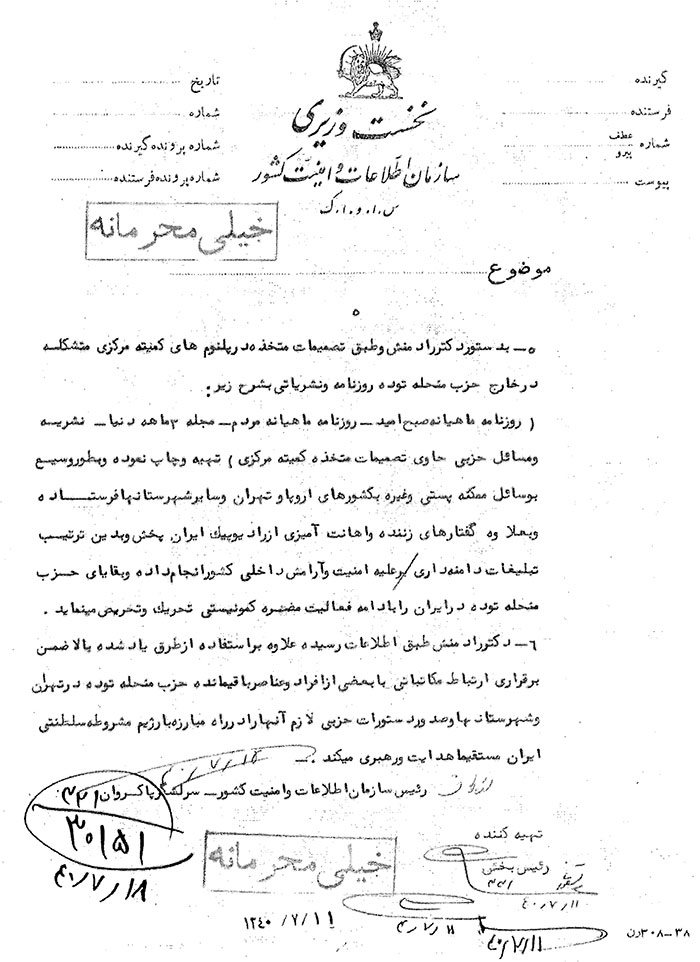 گیرنده
فرستنده
شماره عطف پیرو
پیوست
نخست وزیری
سازمان اطلاعات و امنیت کشور
س.ا.و.ا.ک
تاریخ
شماره
شماره پرونده گیرنده
شماره پرونده فرستنده
خیلی محرمانه
موضوع
۵ـ بدستور دکتر رادمنش و طبق تصمیمات متخذه در پلنوم های کمیته مرکزی متشکله
در خارج حزب منحله توده روزنامه و نشریاتی بشرح زیر :
( روزنامه ماهیانه صبح امید ـ روزنامه ماهیانه مردم ـ مجله ۳ ماهه دنیا ـ نشریه
ومسائل حزبی حاوی تصمیمات متخذه کمیته مرکزی ) تهیه و چاپ نموده و بطور وسیع
بوسائل ممکنه پستی وغیره بکشورهای اروپا و تهران وسایر شهرستانها فرستاده
وبعلاوه گفتارهای زننده واهانت آمیزی از رادیو پیک ایران پخش وبدین ترتیب
تبلیغات دامنه داری بر علیه امنیت وآرامش داخلی کشور انجام داده وبقایای حزب
منحله توده در ایران را بادامه فعالیت مضره کمونیستی تحریک وتحریص مینماید .
۶ـ دکتر رادمنش طبق اطلاعات رسیده علاوه بر استفاده از طرق یاد شده بالا ضمن
برقراری ارتباط مکاتباتی با بعضی از افراد وعناصر باقیمانده حزب منحله توده در تهران
و شهرستانها وصدور دستورات حزبی لازم آنها را در راه مبارزه با رژیم مشروطه سلطنتی
ایران مستقیما هدایت ورهبری میکند .ـ
رئیس سازمان اطلاعات وامنیت کشور ـ سرلشگر پاکروان
۳۲۱
۳۰۱۵۱
۴۰/۷/۱۸
تهیه کننده
رئیس بخش
۳۲۱
۴۰/۷/۱۱
خیلی محرمانه
۴۰/۷/۱۱
۱۳۴۰/۷/۱۱
۴۰/۷/۱۱
۳۸ـ۳۰۸ن